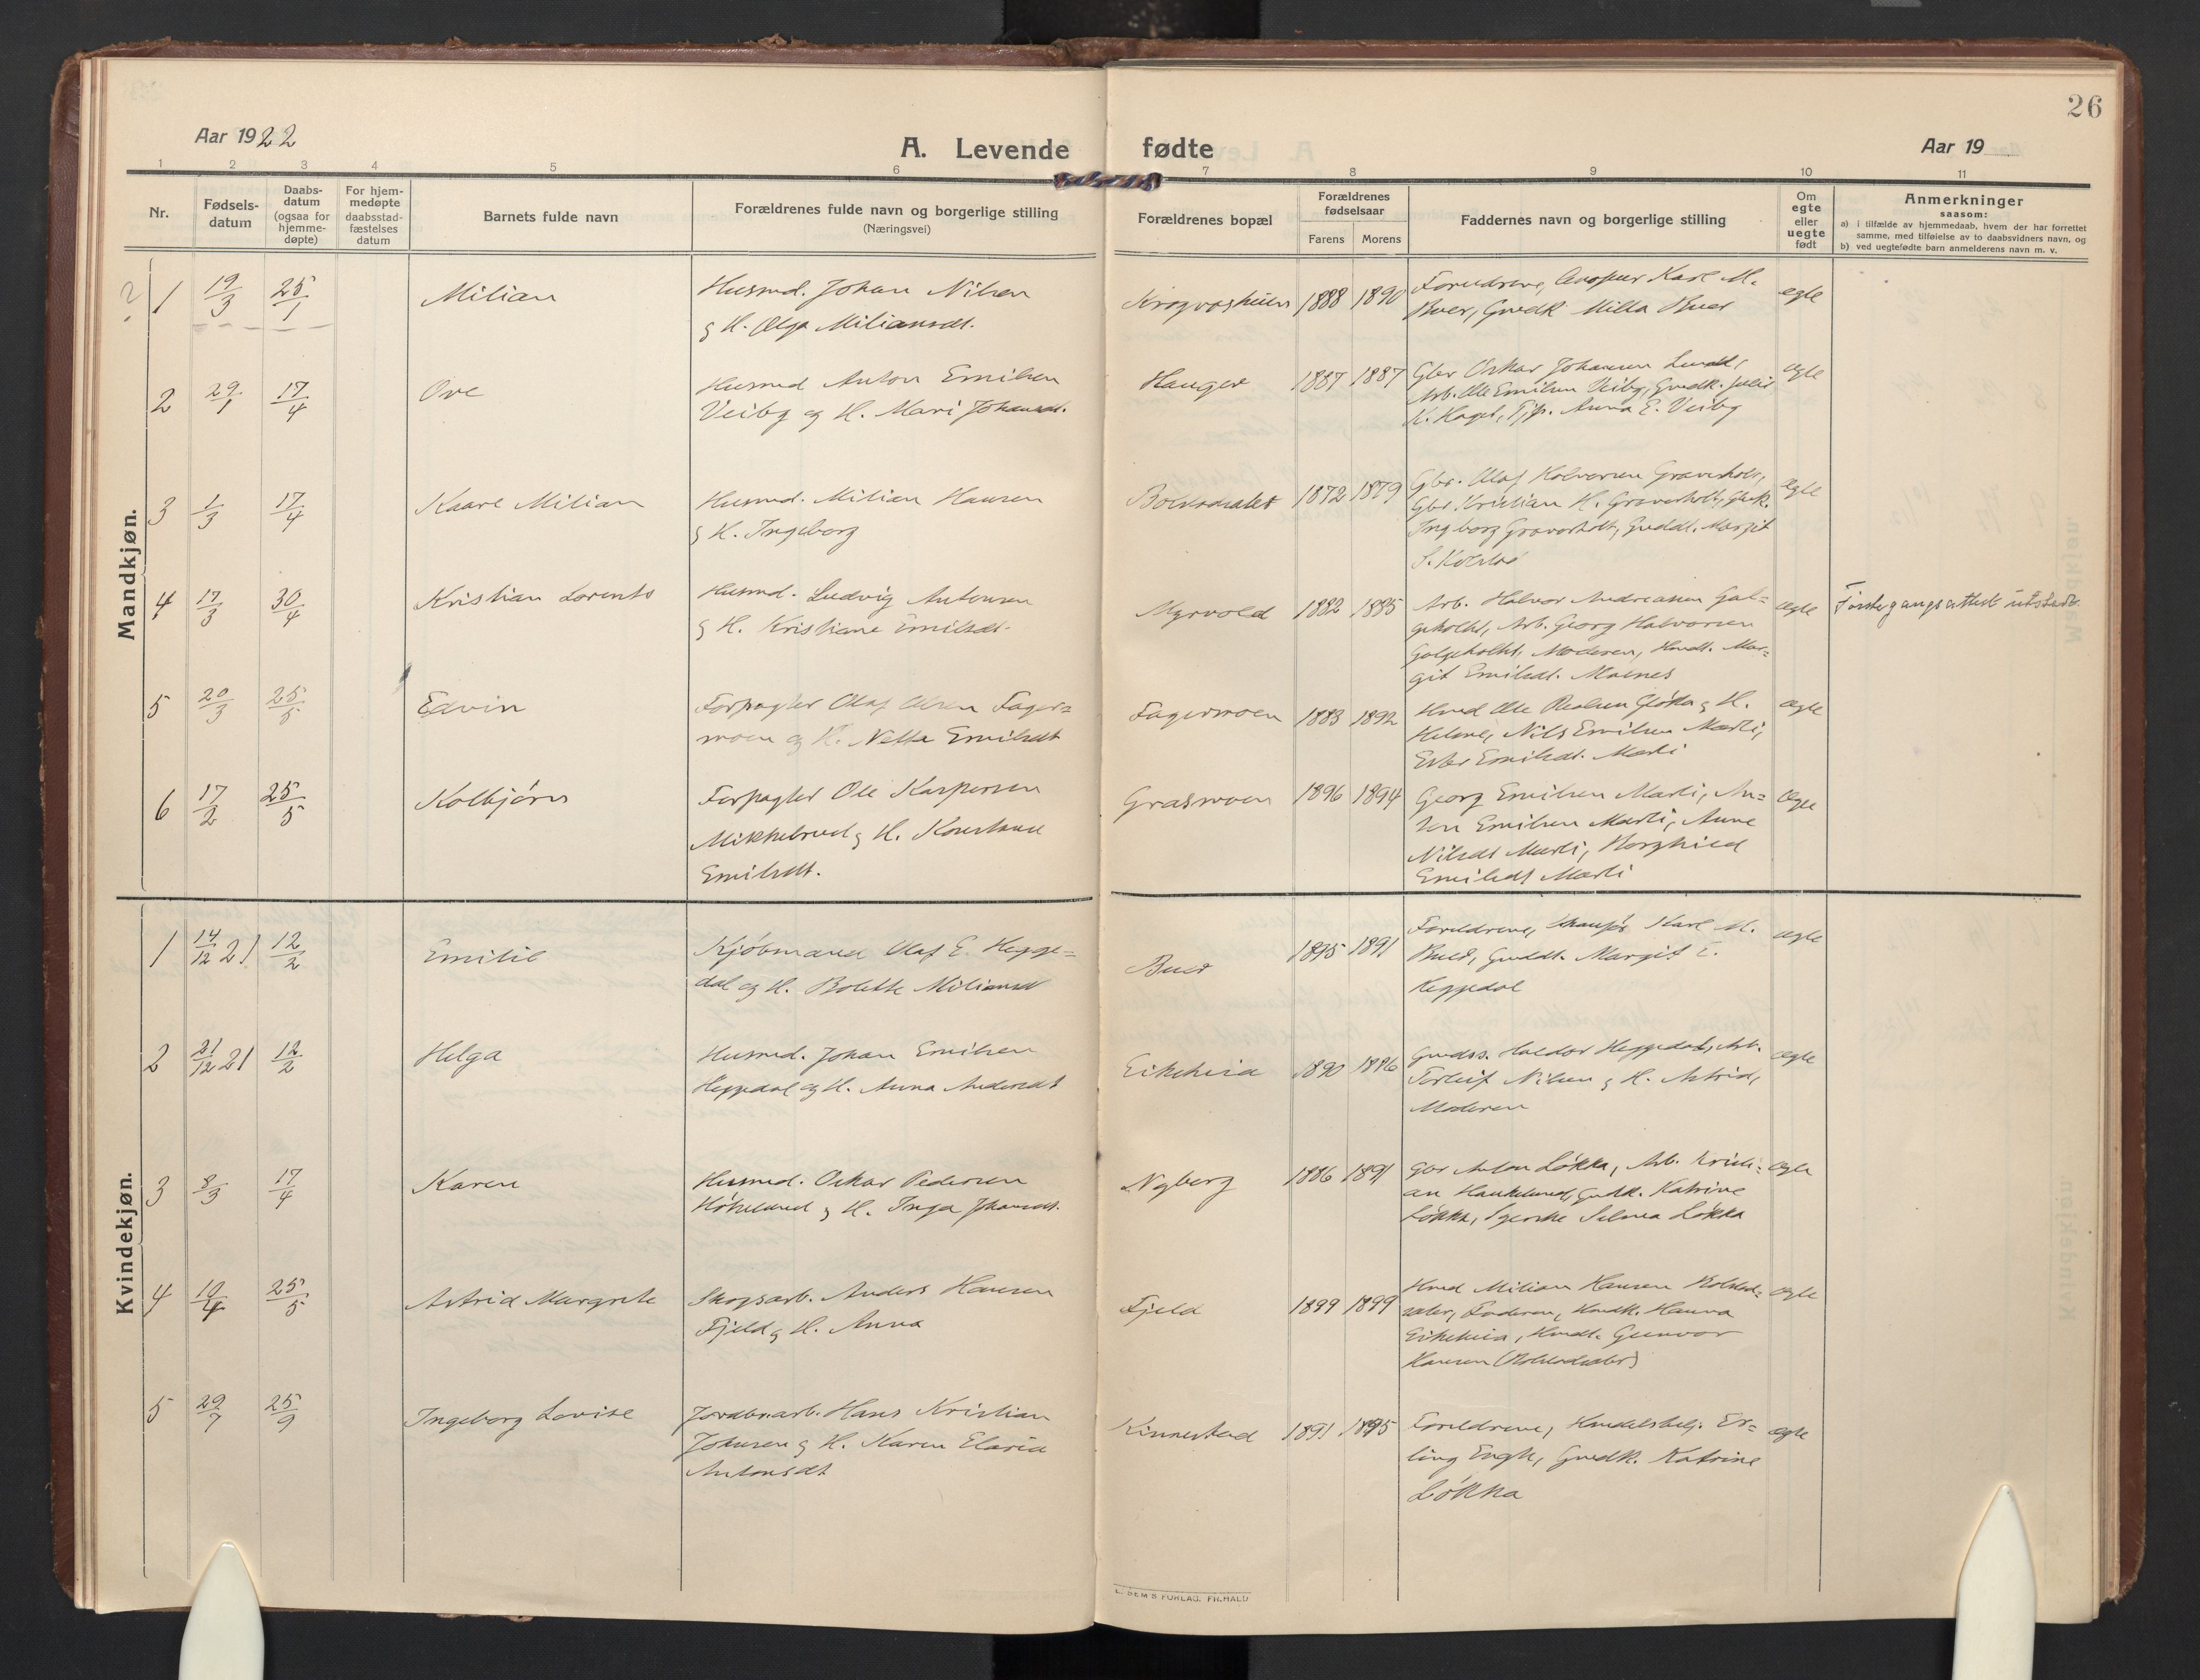 26
Aar 1922
A. Levende fødte
Aar 19
1 2 3 4 5 6 7 8 9 10 11
Nr.
Fødsels-
datum
Daabs-
datum
(ogsaa for
hjemme-
døpte)
For hjem-
medøpte
daabsstad-
fæstelses
datum
Barnets fulde navn
Forældrenes fulde navn og borgerlige stilling
(Næringsvei)
Forældrenes bopæl
Forældrenes
fødselsaar
Farens Morens
Faddernes navn og borgerlige stilling
Om
egte
eller
uegte
født
Anmerkninger
saasom:
a) i tilfælde av hjemmedaab, hvem der har forrettet
samme, med tilføielse av to daabsvidners navn, og
b) ved uegtefødte barn anmelderens navn m. v.
Mandkjøn.
? 1 19/3 25/1 Milian
Husmd. Johan Nilsen
g H. Olga Miliansdt.
1888 1890
Forældrene, Karl M.
Buer, Gmdk Milla Buer
egte
2 29/1 17/4 Ove
Husmd Anton Emilsen
Veiby og H. Mari Johansdt.
Hauger 1887 1887
Gbr Oskar Johansen Lund,
Arb. Ole Emilsen Veiby, Gmdk.
K. Haget, Tjp. Anna E. Veiby
egte
3 1/3 17/4 Kaare Milian
Husmd. Milian Hansen
g H. Ingeborg
1872 1879
Gbr. Olaf Halvorsen Graverholt,
Gbr. Kristian H. Graverholt,
Ingborg Graverholt, Gmddt. Margit
S.
egte
4 17/3 30/4 Kristian Lorents
Husmd. Ludvig Antonsen
g H. Kristiane Emilsdt.
Myrvold 1882 1885
Arb. Halvor Andreasen Gal=
geholt, Arb. Georg Halvorsen
Galgeholt, Moderen, Hmdt. Mar=
git Emilsdt. Moenes
egte
Førstegangsattest utstedt
5 20/3 25/5 Edvin
Forpagter Olaf Olsen Fager=
moen og H. Netta Emilsdt
Fagermoen 1883 1892
Hmd Ole Paulsen Gjøka g H.
Helene, Nils Emilsen Mørli,
Ester Emilsdt. Mørli
egte
6 17/2 25/5 Kolbjørn
Forpagter Ole Kaspersen
Mikkelrud g H. Konstanse
Emilsdt.
Grasmoen 1896 1894
Georg Emilsen Mørli, An=
ton Emilsen Mørli, Anne
Nilsdt Mørli, Borghild
Emilsdt Mørli
egte
Kvindekjøn.
1 14/12 21 12/2 Emilie
Kjøbmand Olaf E. Heppe=
dal og H. Bolette Miliansdt
Buer 1895 1891
Forældrene, Karl M.
Buer, Gmddt. Margit E.
Heppedal
egte
2 21/12 21 12/2 Helga
Husmd. Johan Emilsen
Heppedal og H. Anna Andersdt
Eikeheia 1890 1886
Gmdss. Haldor Heppedal, Arb.
Torleif Nilsen g H. Astrid,
Moderen
egte
3 8/3 17/4 Karen
Husmd. Oskar Pedersen
g H. Inga Johansdt.
Nyberg 1886 1891
Gbr Anton Løkka, Arb. Kristi=
an Gmdk. Katrine
Løkka, Selma Løkka
egte
4 19/4 25/5 Astrid Margrete
Skogsarb. Anders Hansen
Fjeld g H. Anna
Fjeld 1899 1899
Hmd Milian Hansen
Faderen, Hmdk. Hanna
Eikeheia, Hmdt. Gunvor
Hansen
egte
5 29/7 25/9 Ingeborg Lovise
Jordbr.arb. Hans Kristian
Johnsen g H. Karen Elavia
Antonsdt
Kinnestad 1891 1895
Forældrene, Handelsbetj. Er=
ling Engh, Gmdk. Katrine
Løkka
egte
E. SEM'S FORLAG. FR.HALD